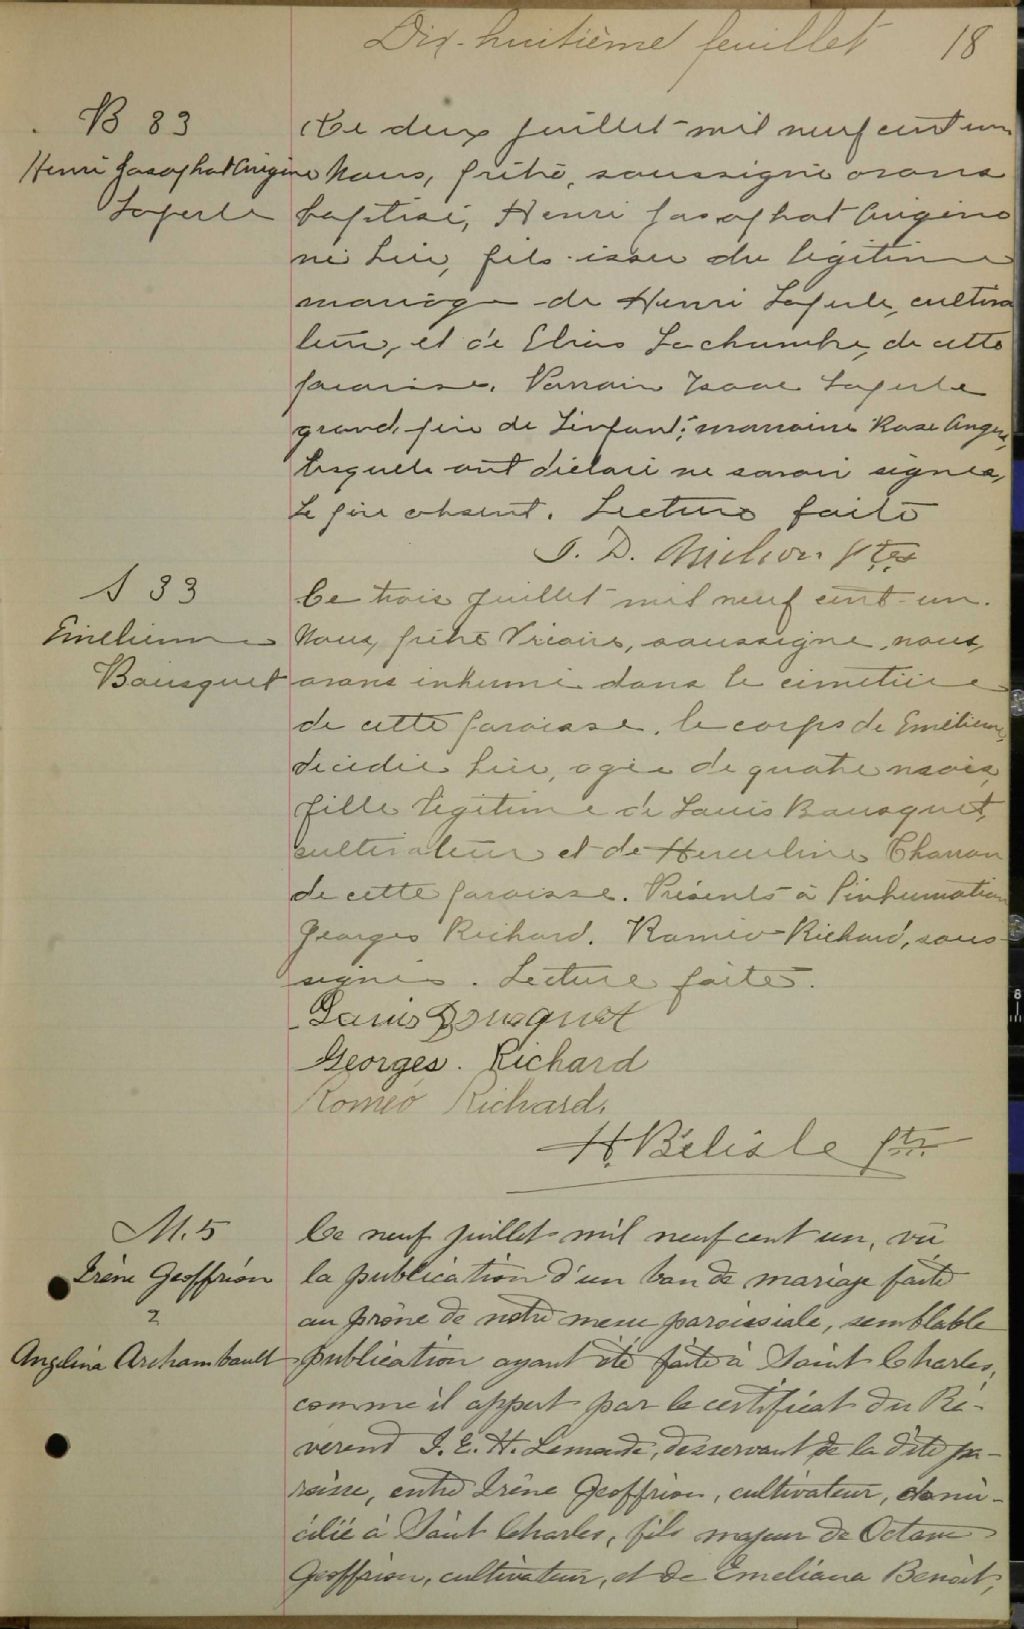 Dix-huitième feuillet 18
B 83
Henri Josaphat Origène
Laferle
Ce deux juillet mil neuf cent un
Nous, prêtre, soussigné avons
baptisé, Henri Josaphat Origène
né hier, fils issu du légitime
mariage de Henri Laferle, cultiva
teur, et de Eliza Lachambre, de cette
paroisse. Parrain Isaac Laferle
grand-père de l'enfant; marraine Rose
lesquels ont déclaré ne savoir signer,
le père absent. Lecture faite
J. D. Ptre
S 33
Emelienne
Bousquet
Ce trois juillet mil neuf cent un.
Nous, prêtre Vicaire, soussigné, nous,
avons inhumé dans le cimetière
de cette paroisse, le corps de Emélienne,
décédée hier, agée de quatre mois,
fille légitime de Louis Bousquet,
cultivateur et de Herculine Charron
de cette paroisse. Présents à l'inhumation
Georges Richard. Roméo Richard, sous-
signés. Lecture faite.
Louis Bousquet
Georges. Richard
Roméo Richard.
H. Bélisle ptr
M. 5
Irène Geoffrion
&
Angelina Archambault
Ce neuf juillet mil neuf cent un, vu
la publication d'un ban de mariage faite
au prône de notre messe paroissiale, semblable
publication ayant été faite à Saint Charles,
comme il appert par le certificat du Ré-
verend J. E. H. desservant de la dite pa-
roisse, entre Irène Geoffrion, cultivateur, domi-
cilié à Saint Charles, fils majeur de Octave
Geoffrion, cultivateur, et de Emeliana Benoit,